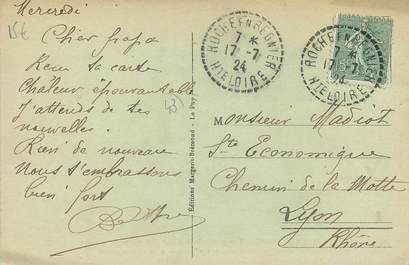 Mercredi
15€
Cher papa
Reçu ta carte
Chaleur épouvantable
J'attends de tes
nouvelles.
Rien de nouveau
Nous t'embrassons
bien fort
(43)
Editions Margerit-Brémond - Le Puy
ROCHE-EN-REGNIER
7 *
17 -7
24
HTE LOIRE
ROCHE-EN-REGNIER
7
17 -7
24
HTE LOIRE
Monsieur Madiot
Sté Economique
Chemin de la Motte
Lyon
Rhône